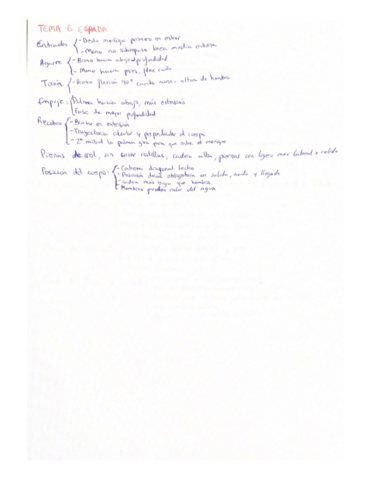 TEMA 6 ESPALDA
Entrada - Dedo meñique primero en entrar
- Mano no sobrepasa línea media cabeza
Agarre - Brazo hacia abajo profundidad
- Mano hacia
Tirón - Brazo flexión 90° cuando mano altura de hombro
Empuje: Palma hacia abajo,
Fase de mayor profundidad
Recobro - Brazo en extensión
- Trayectoria y perpendicular al cuerpo
- 2ª mitad la palma gira para que entre el meñique
Piernas de crol, sin sacar rodillas, cadera alta, piernas con ligero
Posición del cuerpo: - Contacto
- Posición dorsal obligatoria en salida, nado y llegada
- Cadera más baja que hombros
- Hombros pueden salir del agua